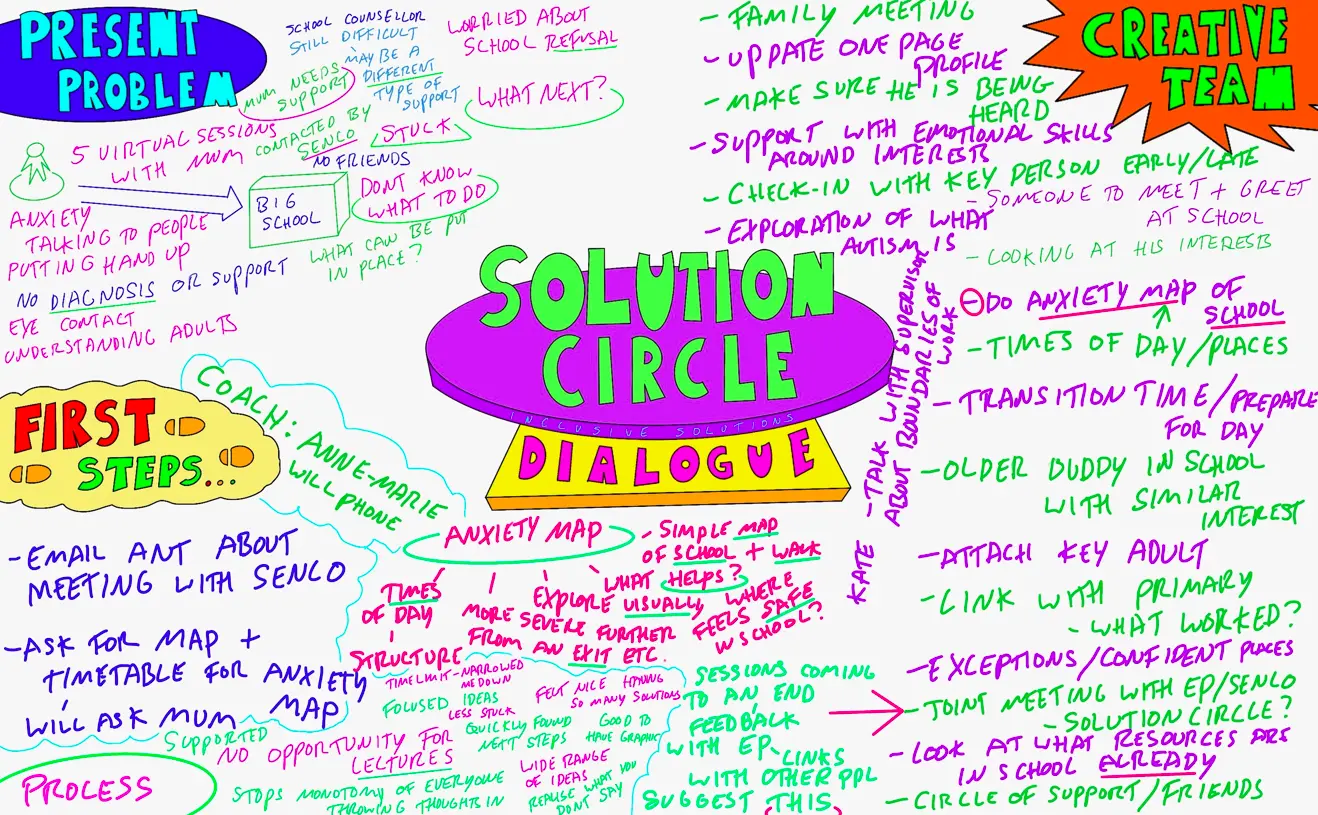 PRESENT
PROBLEM
SCHOOL COUNSELLOR
STILL DIFFICULT
MAYBE A
DIFFERENT
TYPE OF
SUPPORT
WORRIED ABOUT
SCHOOL REFUSAL
MUM NEEDS
SUPPORT
WHAT NEXT?
5 VIRTUAL SESSIONS
WITH MUM
CONTACTED BY
SENCO
STUCK
NO FRIENDS
BIG
SCHOOL
DONT KNOW
WHAT TO DO
WHAT CAN BE PUT
IN PLACE?
ANXIETY
TALKING TO PEOPLE
PUTTING HAND UP
NO DIAGNOSIS OR SUPPORT
EYE CONTACT
UNDERSTANDING ADULTS
CREATIVE
TEAM
- FAMILY MEETING
- UPDATE ONE PAGE
PROFILE
- MAKE SURE HE IS BEING
HEARD
- SUPPORT WITH EMOTIONAL SKILLS
AROUND INTERESTS
- CHECK-IN WITH KEY PERSON EARLY/LATE
- SOMEONE TO MEET + GREET
AT SCHOOL
- EXPLORATION OF WHAT
AUTISM IS
- LOOKING AT HIS INTERESTS
- DO ANXIETY MAP OF
SCHOOL
- TIMES OF DAY/PLACES
- TRANSITION TIME/PREPARE
FOR DAY
- OLDER BUDDY IN SCHOOL
WITH SIMILAR
INTEREST
- ATTACH KEY ADULT
- LINK WITH PRIMARY
- WHAT WORKED?
- EXCEPTIONS/CONFIDENT PLACES
- JOINT MEETING WITH EP/SENCO
- SOLUTION CIRCLE?
- LOOK AT WHAT RESOURCES ARE
IN SCHOOL ALREADY
- CIRCLE OF SUPPORT/FRIENDS
KATE - TALK WITH SUPERVISOR
ABOUT BOUNDARIES OF
WORK
SOLUTION
CIRCLE
INCLUSIVE SOLUTIONS
DIALOGUE
FIRST
STEPS...
COACH: ANNE-MARIE
WILL PHONE
- EMAIL ANT ABOUT
MEETING WITH SENCO
- ASK FOR MAP +
TIMETABLE FOR ANXIETY
MAP
WILL ASK MUM
ANXIETY MAP
TIMES
OF DAY
STRUCTURE
MORE SEVERE FURTHER
FROM AN EXIT ETC.
EXPLORE VISUALLY
WHAT HELPS?
- SIMPLE MAP
OF SCHOOL + WALK
WHERE
FEELS SAFE
IN SCHOOL?
SESSIONS COMING
TO AN END
FEEDBACK
WITH EP
LINKS
WITH OTHER PPL
SUGGEST THIS
PROCESS
SUPPORTED
NO OPPORTUNITY FOR
LECTURES
STOPS MONOTOMY OF EVERYONE
THROWING THOUGHTS IN
TIME LIMIT - NARROWED
ME DOWN
FOCUSED IDEAS
LESS STUCK
QUICKLY FOUND
NEXT STEPS
FELT NICE HAVING
SO MANY SOLUTIONS
GOOD TO
HAVE GRAPHIC
WIDE RANGE
OF IDEAS
REALISE WHAT YOU
DONT SAY